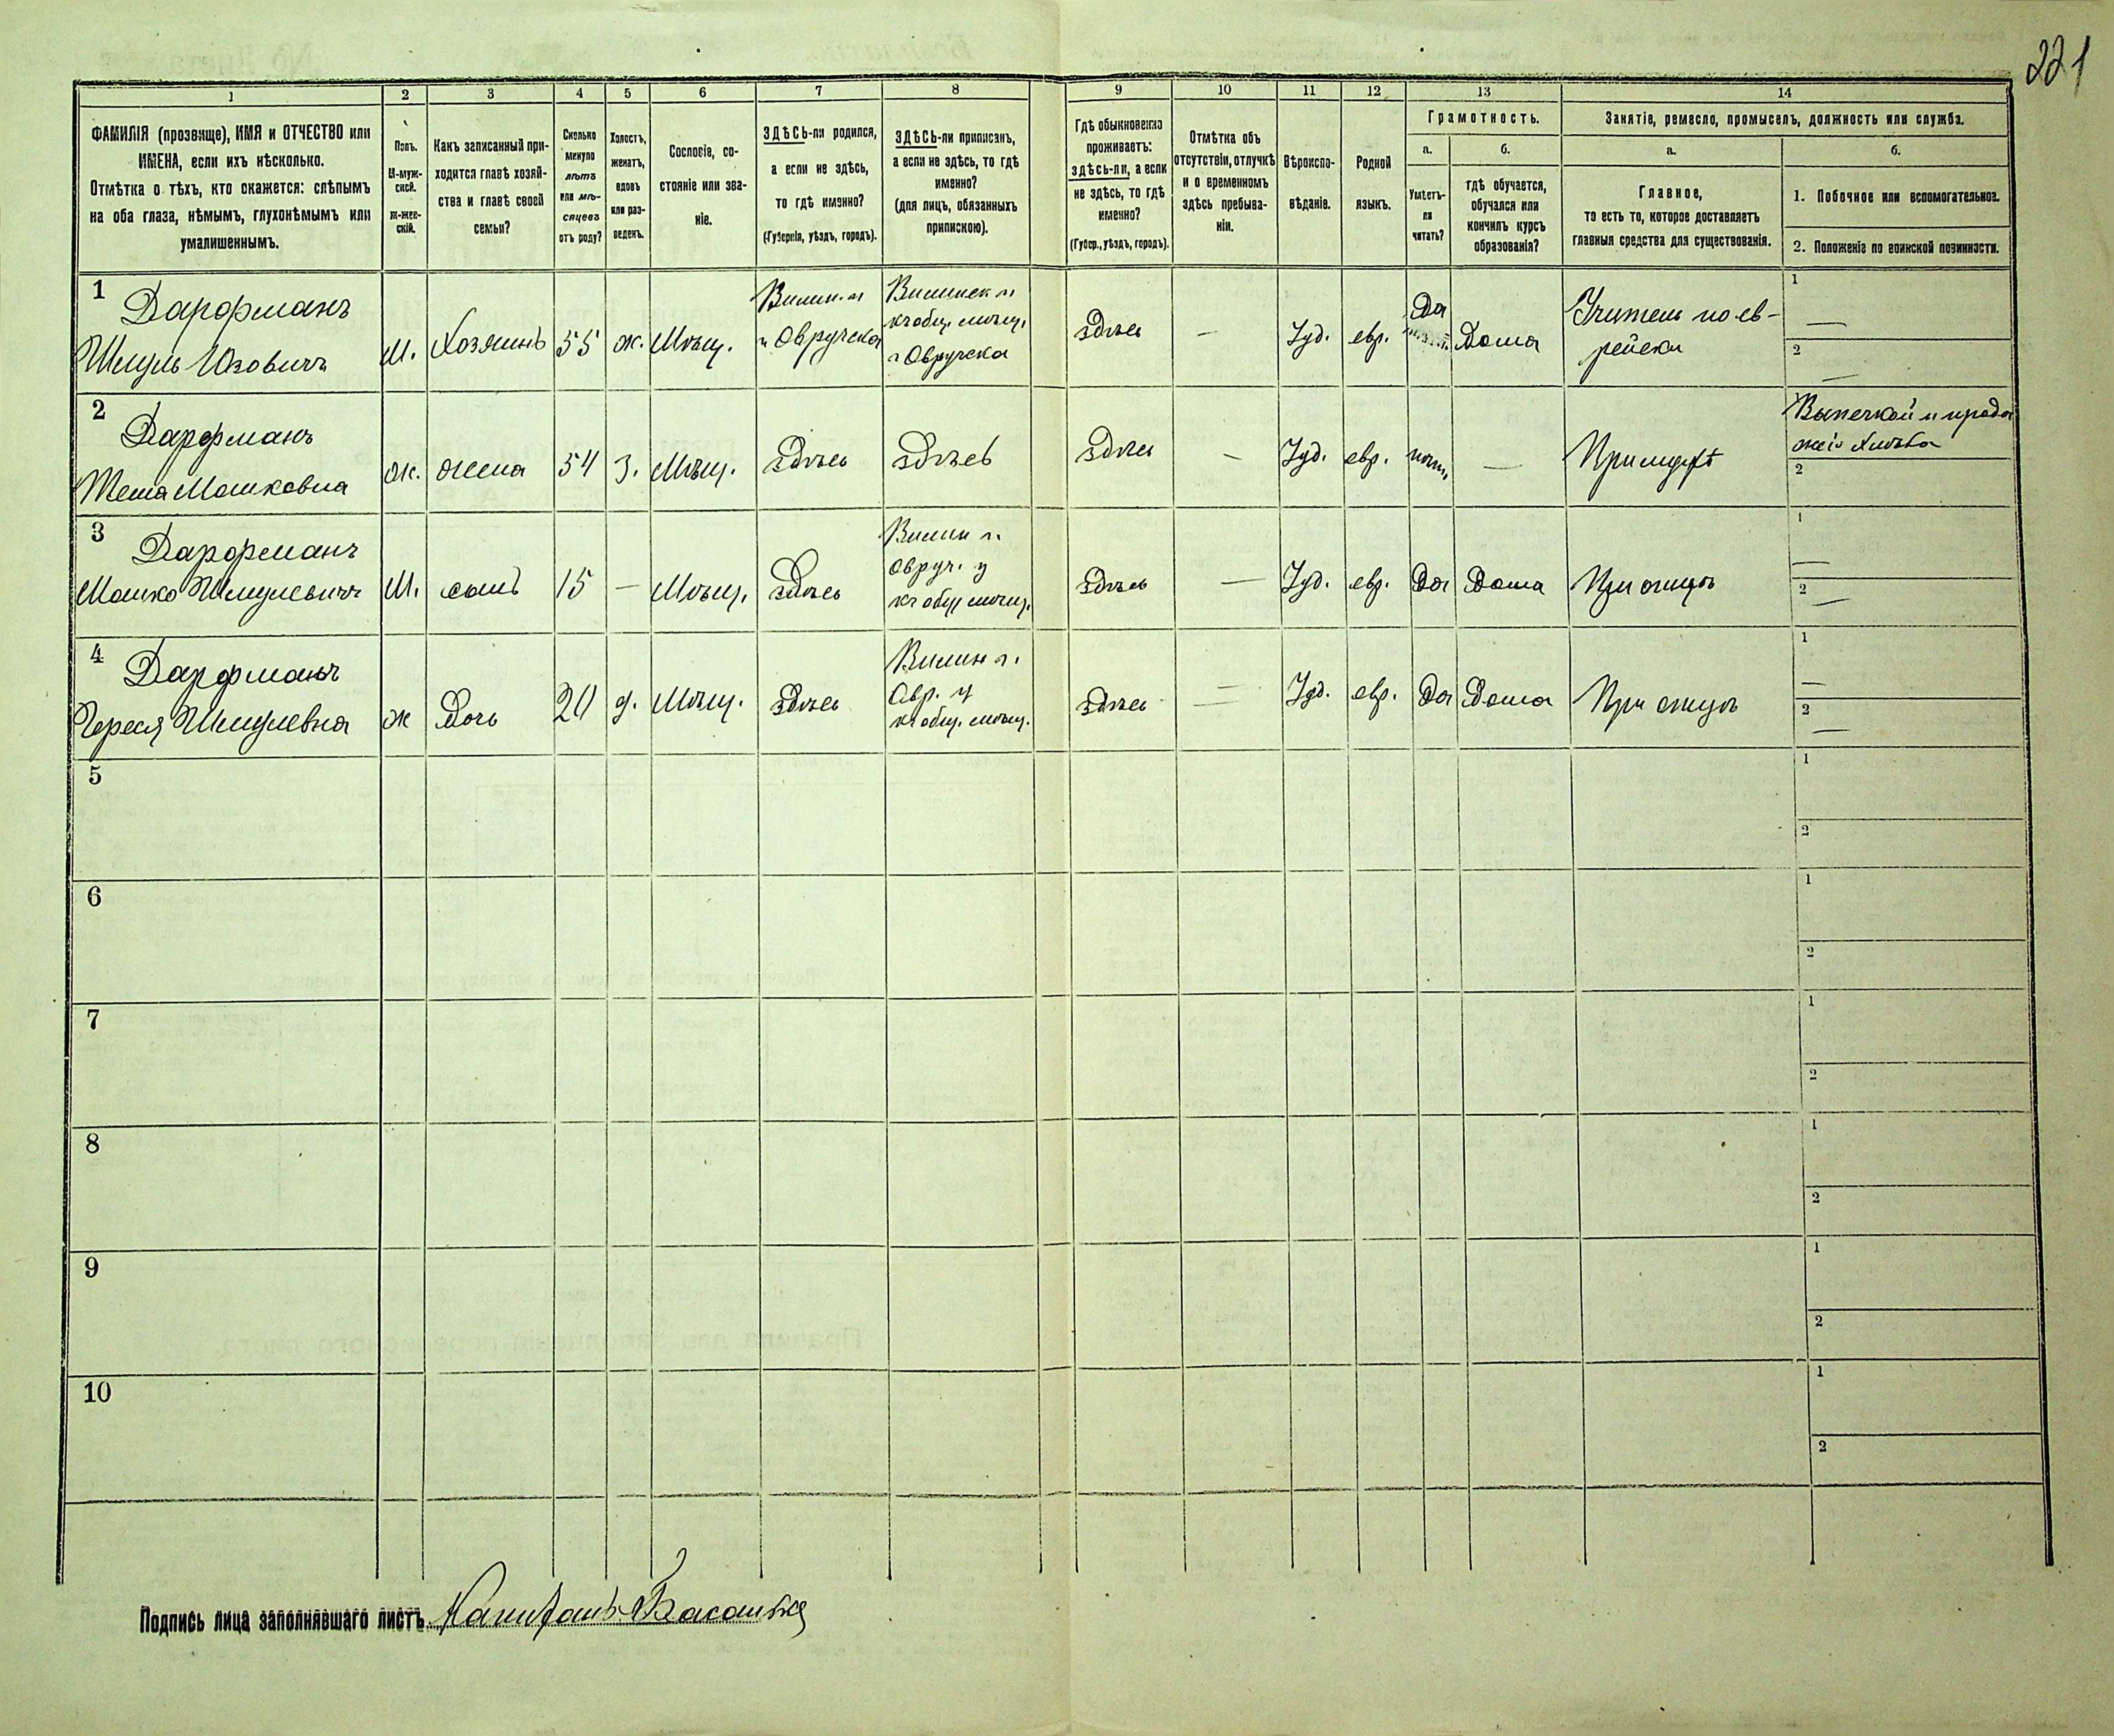 221
1
2
3
4
5
6
7
8
9
10
11
12
13
14
ФАМИЛІЯ (прозвище), ИМЯ и ОТЧЕСТВО или
ИМЕНА, если ихъ нѣсколько.
Отмѣтка о тѣхъ, кто окажется: слѣпымъ
на оба глаза, нѣмымъ, глухонѣмымъ или
умалишеннымъ.
Полъ.
М-муж-
ской.
ж-жен-
скій.
Какъ записанный при-
ходится главѣ хозяй-
ства и главѣ своей
семьи?
Сколько
минуло
лѣтъ
или мѣ-
сяцевъ
отъ роду?
Холостъ,
женатъ,
вдовъ
или раз-
веденъ.
Сословіе, со-
стояніе или зва-
ніе.
ЗДѢСЬ-ли родился,
а если не здѣсь,
то гдѣ именно?
(Губернія, уѣздъ, городъ).
ЗДѢСЬ-ли приписанъ,
а если не здѣсь, то гдѣ
именно?
(для лицъ, обязанныхъ
припискою).
Гдѣ обыкновенно
проживаетъ:
здѣсь-ли, а если
не здѣсь, то гдѣ
именно?
(Губер., уѣздъ, городъ).
Отмѣтка объ
отсутствіи, отлучкѣ
и о временномъ
здѣсь пребыва-
ніи.
Вѣроиспо-
вѣданіе.
Родной
языкъ.
Грамотность.
а.
Умѣетъ-
ли
читать?
б.
гдѣ обучается,
обучался или
кончилъ курсъ
образованія?
Занятіе, ремесло, промыселъ, должность или служба.
а.
Главное,
то есть то, которое доставляетъ
главныя средства для существованія.
б.
1. Побочное или вспомогательное.
2. Положеніе по воинской повинности.
1
Дарфманъ
Шмуль Іозовичъ
М.
Хозяинъ
55
ж.
Мѣщ.
Овручска
къ обще. мѣщ.
г Овручска
здѣсь
—
Іуд.
евр.
Да
Дома
Учитель по ев-
рейски
1
—
2
—
2
Дарфманъ
Теша Мошковна
ж.
жена
54
З.
Мѣщ.
здѣсь
здѣсь
здѣсь
—
Іуд.
евр.
нѣт,
—
При мужѣ
Выпечкой и прода
жей хлѣба
2
3
Дарфманъ
Мошко Шмулевичъ
М.
сынъ
15
—
Мѣщ.
здѣсь
Овруч. у
къ общ мѣщ.
здѣсь
—
Іуд.
евр.
Да
Дома
При отцѣ
1
—
2
—
4
Дарфманъ
Переся Шмулевна
ж
Дочь
20
д.
Мѣщ.
здѣсь
Овр. у
къ общ. мѣщ.
здѣсь
—
Іуд.
евр.
Да
Дома
При отцѣ
1
—
2
—
5
1
2
6
1
2
7
1
2
8
1
2
9
1
2
10
1
2
Подпись лица заполнявшаго листъ